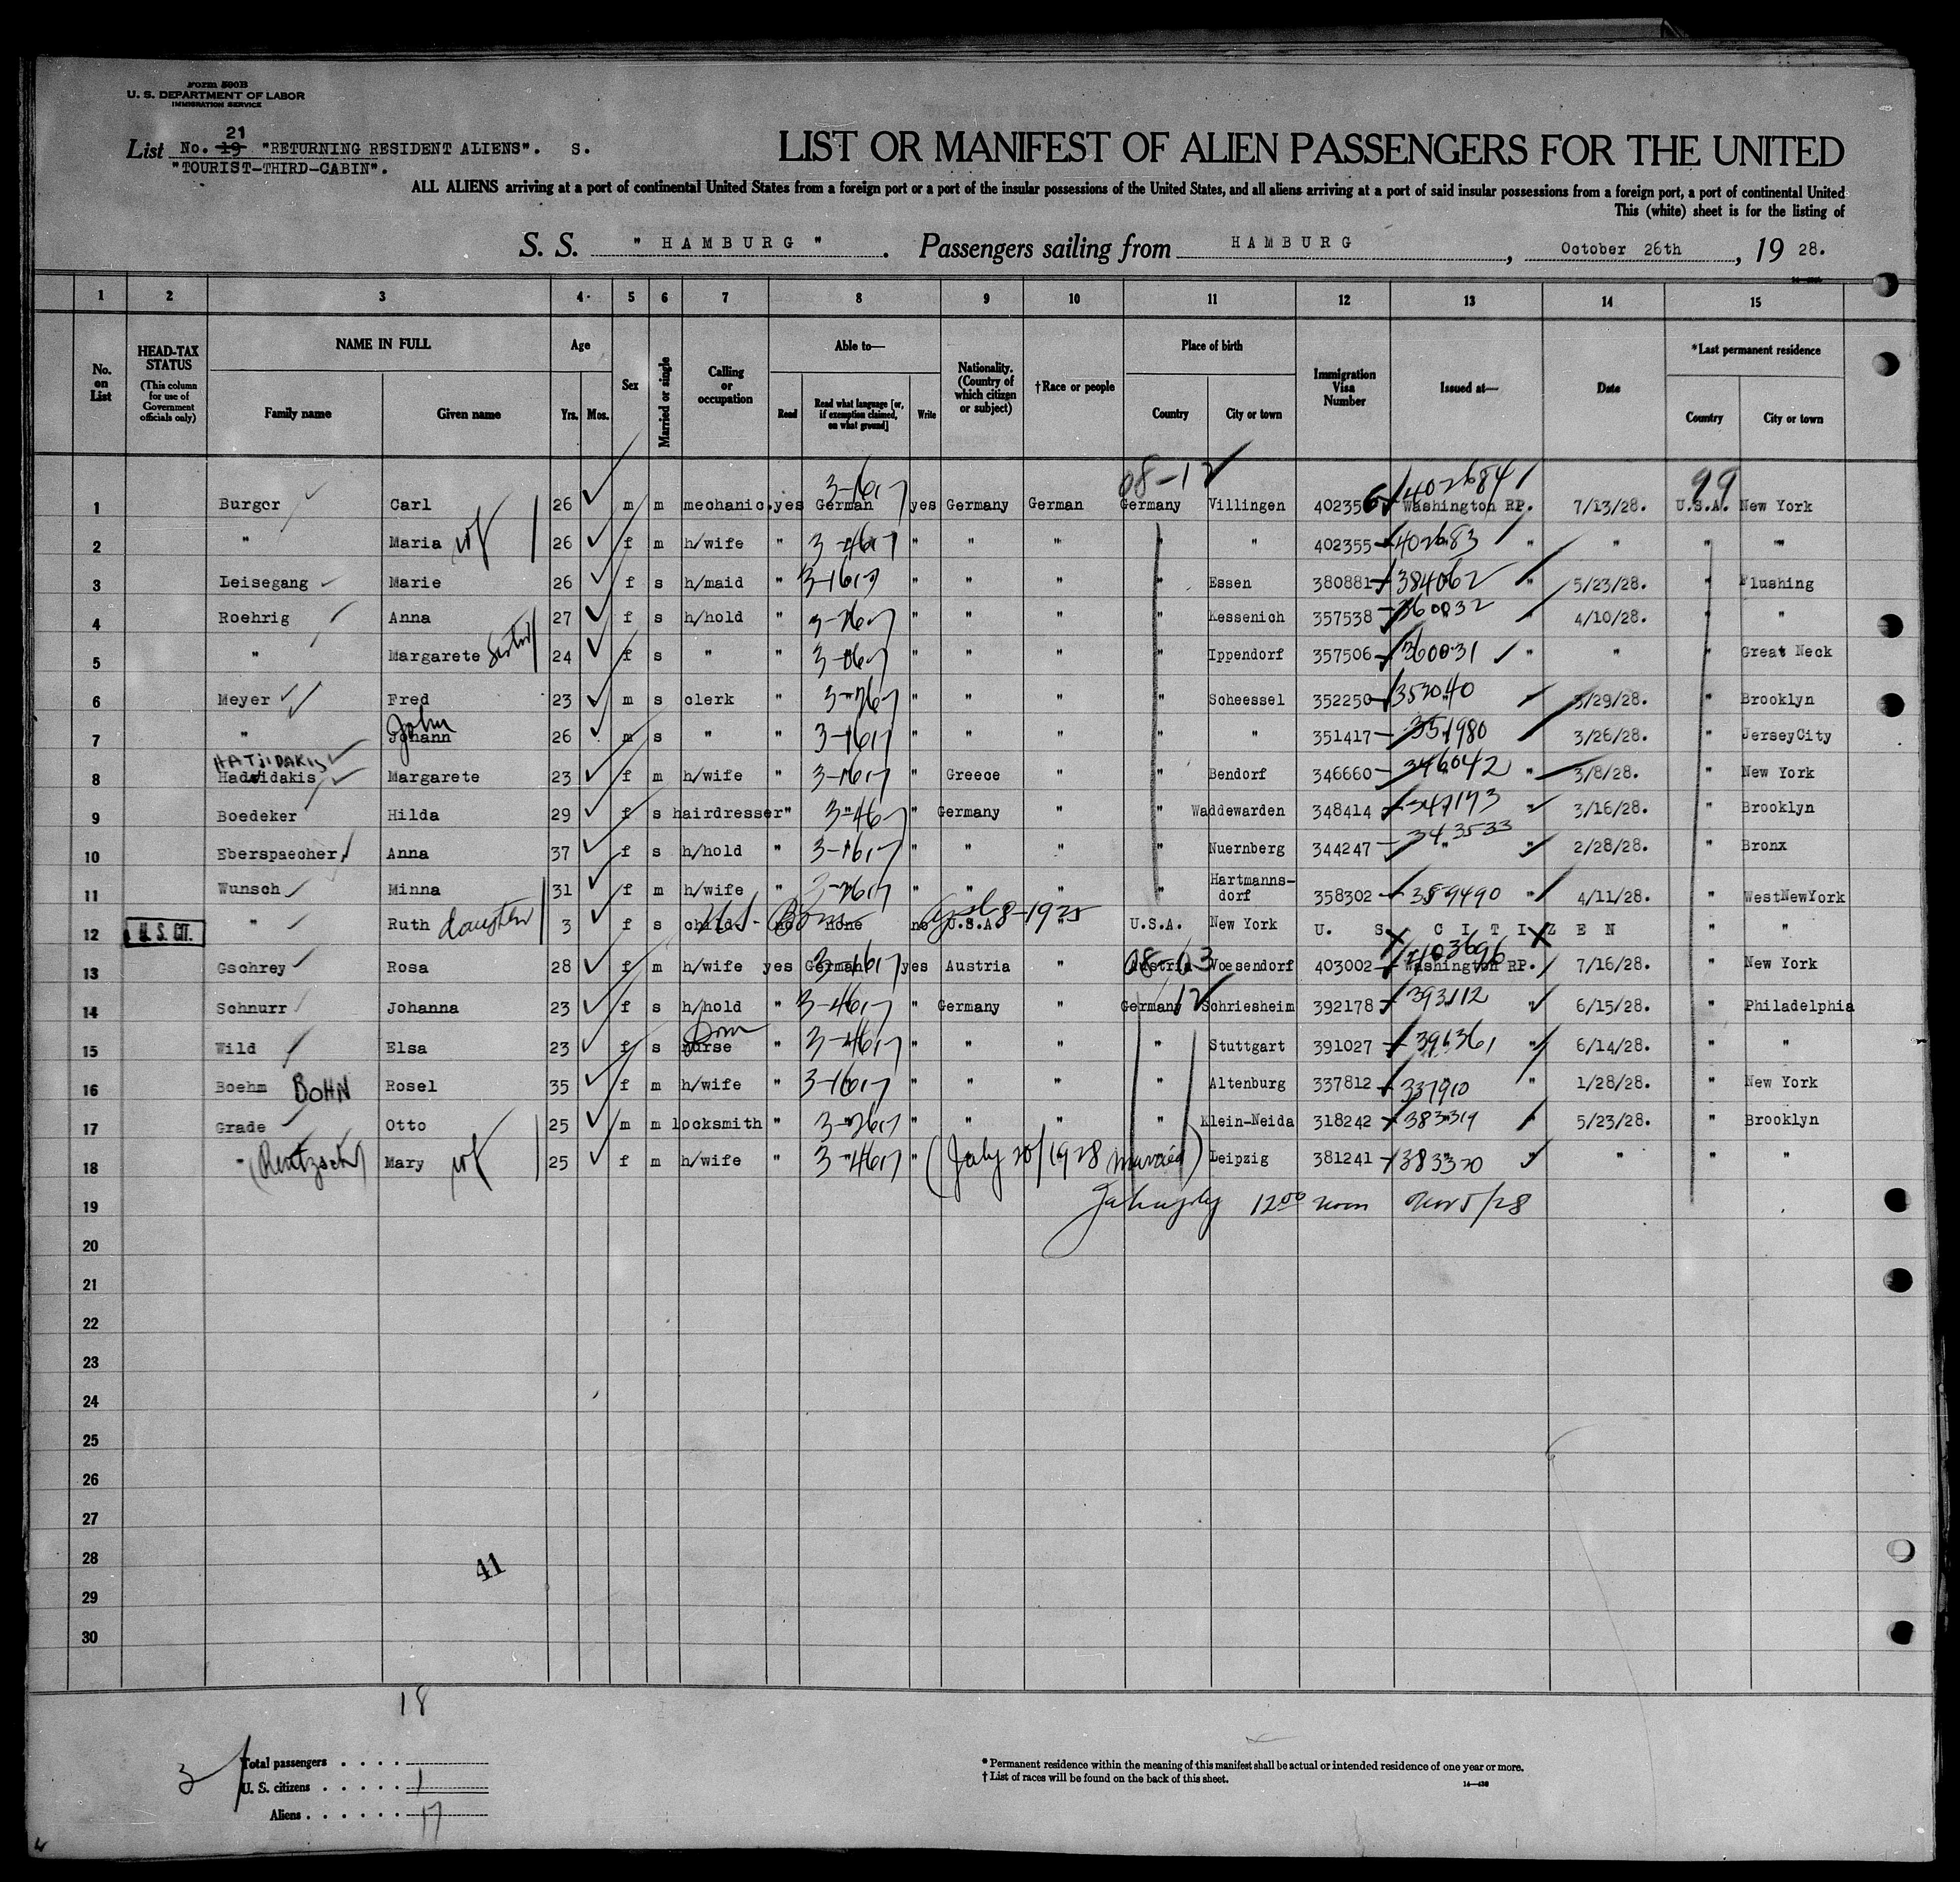 Form 500B
U. S. DEPARTMENT OF LABOR
IMMIGRATION SERVICE
21
List No. 19 "RETURNING RESIDENT ALIENS". S.
"TOURIST-THIRD-CABIN".
LIST OR MANIFEST OF ALIEN PASSENGERS FOR THE UNITED
ALL ALIENS arriving at a port of continental United States from a foreign port or a port of the insular possessions of the United States, and all aliens arriving at a port of said insular possessions from a foreign port, a port of continental United
This (white) sheet is for the listing of
S. S. " HAMBURG ". Passengers sailing from HAMBURG, October 26th, 19 28.
1 2 3 4 5 6 7 8 9 10 11 12 13 14 15
No. on List
HEAD-TAX STATUS (This column for use of Government officials only)
NAME IN FULL Family name Given name
Age Yrs. Mos.
Sex
Married or single
Calling or occupation
Able to— Read Read what language [or, if exemption claimed, on what ground] Write
Nationality. (Country of which citizen or subject)
†Race or people
Place of birth Country City or town
Immigration Visa Number
Issued at—
Date
*Last permanent residence Country City or town
3-1617 08-12 402684 99
1 Burger Carl 26 m m mechanic. yes German yes Germany German Germany Villingen 402356 Washington RP. 7/13/28. U.S.A. New York
2 " Maria wf 26 f m h/wife " " " " " " 402355 402683 " " " "
3 Leisegang Marie 26 f s h/maid " " " " " Essen 380881 384062 " 5/23/28. " Flushing
4 Roehrig Anna 27 f s h/hold " " " " " Kessenich 357538 360032 " 4/10/28. " "
5 " Margarete Sister 24 f s " " " " " " Ippendorf 357506 360031 " " " Great Neck
6 Meyer Fred 23 m s clerk " " " " " Scheessel 352250 353040 " 3/29/28. " Brooklyn
John
7 " Johann 26 m s " " 3-1617 " " " " " 351417 351980 " 3/26/28. " JerseyCity
HATJIDAKIS
8 Hadsidakis Margarete 23 f m h/wife " 3-1617 " Greece " " Bendorf 346660 346042 " 3/8/28. " New York
9 Boedeker Hilda 29 f s hairdresser " " Germany " " Waddewarden 348414 347173 " 3/16/28. " Brooklyn
10 Eberspaecher, Anna 37 f s h/hold " 3-1617 " " " " Nuernberg 344247 343533 " 2/28/28. " Bronx
11 Wunsch Minna 31 f m h/wife " " " " " Hartmanns-dorf 358302 359490 " 4/11/28. " WestNewYork
12 U. S. CIT. " Ruth daughter 3 f s child no none no U.S.A. " U.S.A. New York U. S. CITIZEN " "
Born April 8-1925
13 Gschrey Rosa 28 f m h/wife yes German yes Austria " Austria Voesendorf 403002 403696 Washington RP. 7/16/28. " New York
14 Schnurr Johanna 23 f s h/hold " 3-4617 " Germany " Germany 12 Schriesheim 392178 393112 " 6/15/28. " Philadelphia
Dom
15 Wild Elsa 23 f s nurse " 3-4617 " " " " Stuttgart 391027 391361 " 6/14/28. " "
16 Boehm BOHN Rosel 35 f m h/wife " 3-1617 " " " " Altenburg 337812 337910 " 1/28/28. " New York
17 Grade Otto 25 m m locksmith " 3-2617 " " " " Klein-Neida 318242 383319 " 5/23/28. " Brooklyn
18 " (Rentzsch) Mary wf 25 f m h/wife " 3-4617 " (July 20/1928 married) Leipzig 381241 383320 " " " "
19 12 00 noon Nov 5/28
20
21
22
23
24
25
26
27
28
29
30
41
18
3
Total passengers
U. S. citizens 1
Aliens 17
* Permanent residence within the meaning of this manifest shall be actual or intended residence of one year or more.
† List of races will be found on the back of this sheet.
14—430